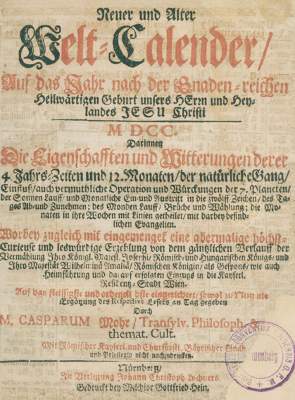 Neuer und Alter
Welt-Calender/
Auf das Jahr nach der Gnaden-reichen
Heilwärtigen Geburt unsers HErrn und Hey-
landes JESU Christi
M DCC.
Darinnen
Die Eigenschafften und Witterungen derer
4. Jahrs-Zeiten und 12. Monaten/ der natürliche Gang/
Einfluß/ auch vermuthliche Operation und Würckungen der 7. Planeten/
der Sonnen Lauff- und Monatliche Ein- und Austritt in die zwölff Zeichen/ des Ta-
ges Ab- und Zunehmen; des Monden Lauff/ Brüche und Wächlung; die Mo-
naten in ihre Wochen mit Linien getheilet/ mit darbey befind-
lichen Evangelien.
Worbey zugleich mit eingemenget eine abermalige höchst-
Curieuse und leswürdige Erzehlung von dem gäntzlichen Verlauff der
Vermählung Ihro Königl. Majest. Josephi/ Römisch- und Hungarischen Königs- und
Ihro Majestät Wilhelmin Amalia/ Römischen Königin/ als Gespons/ wie auch
Heimführung und darauf erfolgten Einzug in die Kayserl.
Residentz-Stadt Wien.
Auf das fleissigste und
Ergötzung des Respective Lesers an Tag gegeben
Durch
M. CASPARUM Mohr/ Transylv. Philosoph. &
themat. Cult.
Mit Römischer Kayserl. und Churfürstl. Bäyrischer
und Privilegio nicht nachzudrucken.
Nürnberg/
In Verlegung Johann Christoph Lochners.
Gedruckt bey Melchior Gottfried Hein.